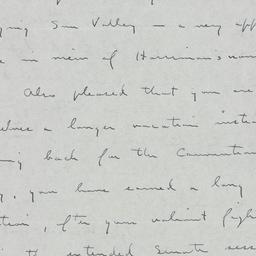 Sun Valley — a very
in view of Harriman's
Also pleased that you are
a longer vacation
back for the Convention
you have earned a long
, after your valiant fight
the extended Senate sess